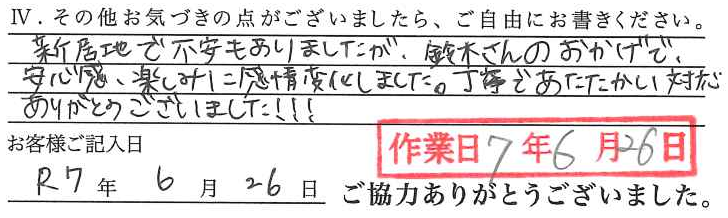 Ⅳ．その他お気づきの点がございましたら、ご自由にお書きください。
新居地で不安もありましたが、鈴木さんのおかげで、
安心感、楽しみに感情変化しました。丁寧であたたかい対応
ありがとうございました!!!
お客様ご記入日
作業日 7年6月26日
R7年 6月 26日
ご協力ありがとうございました。